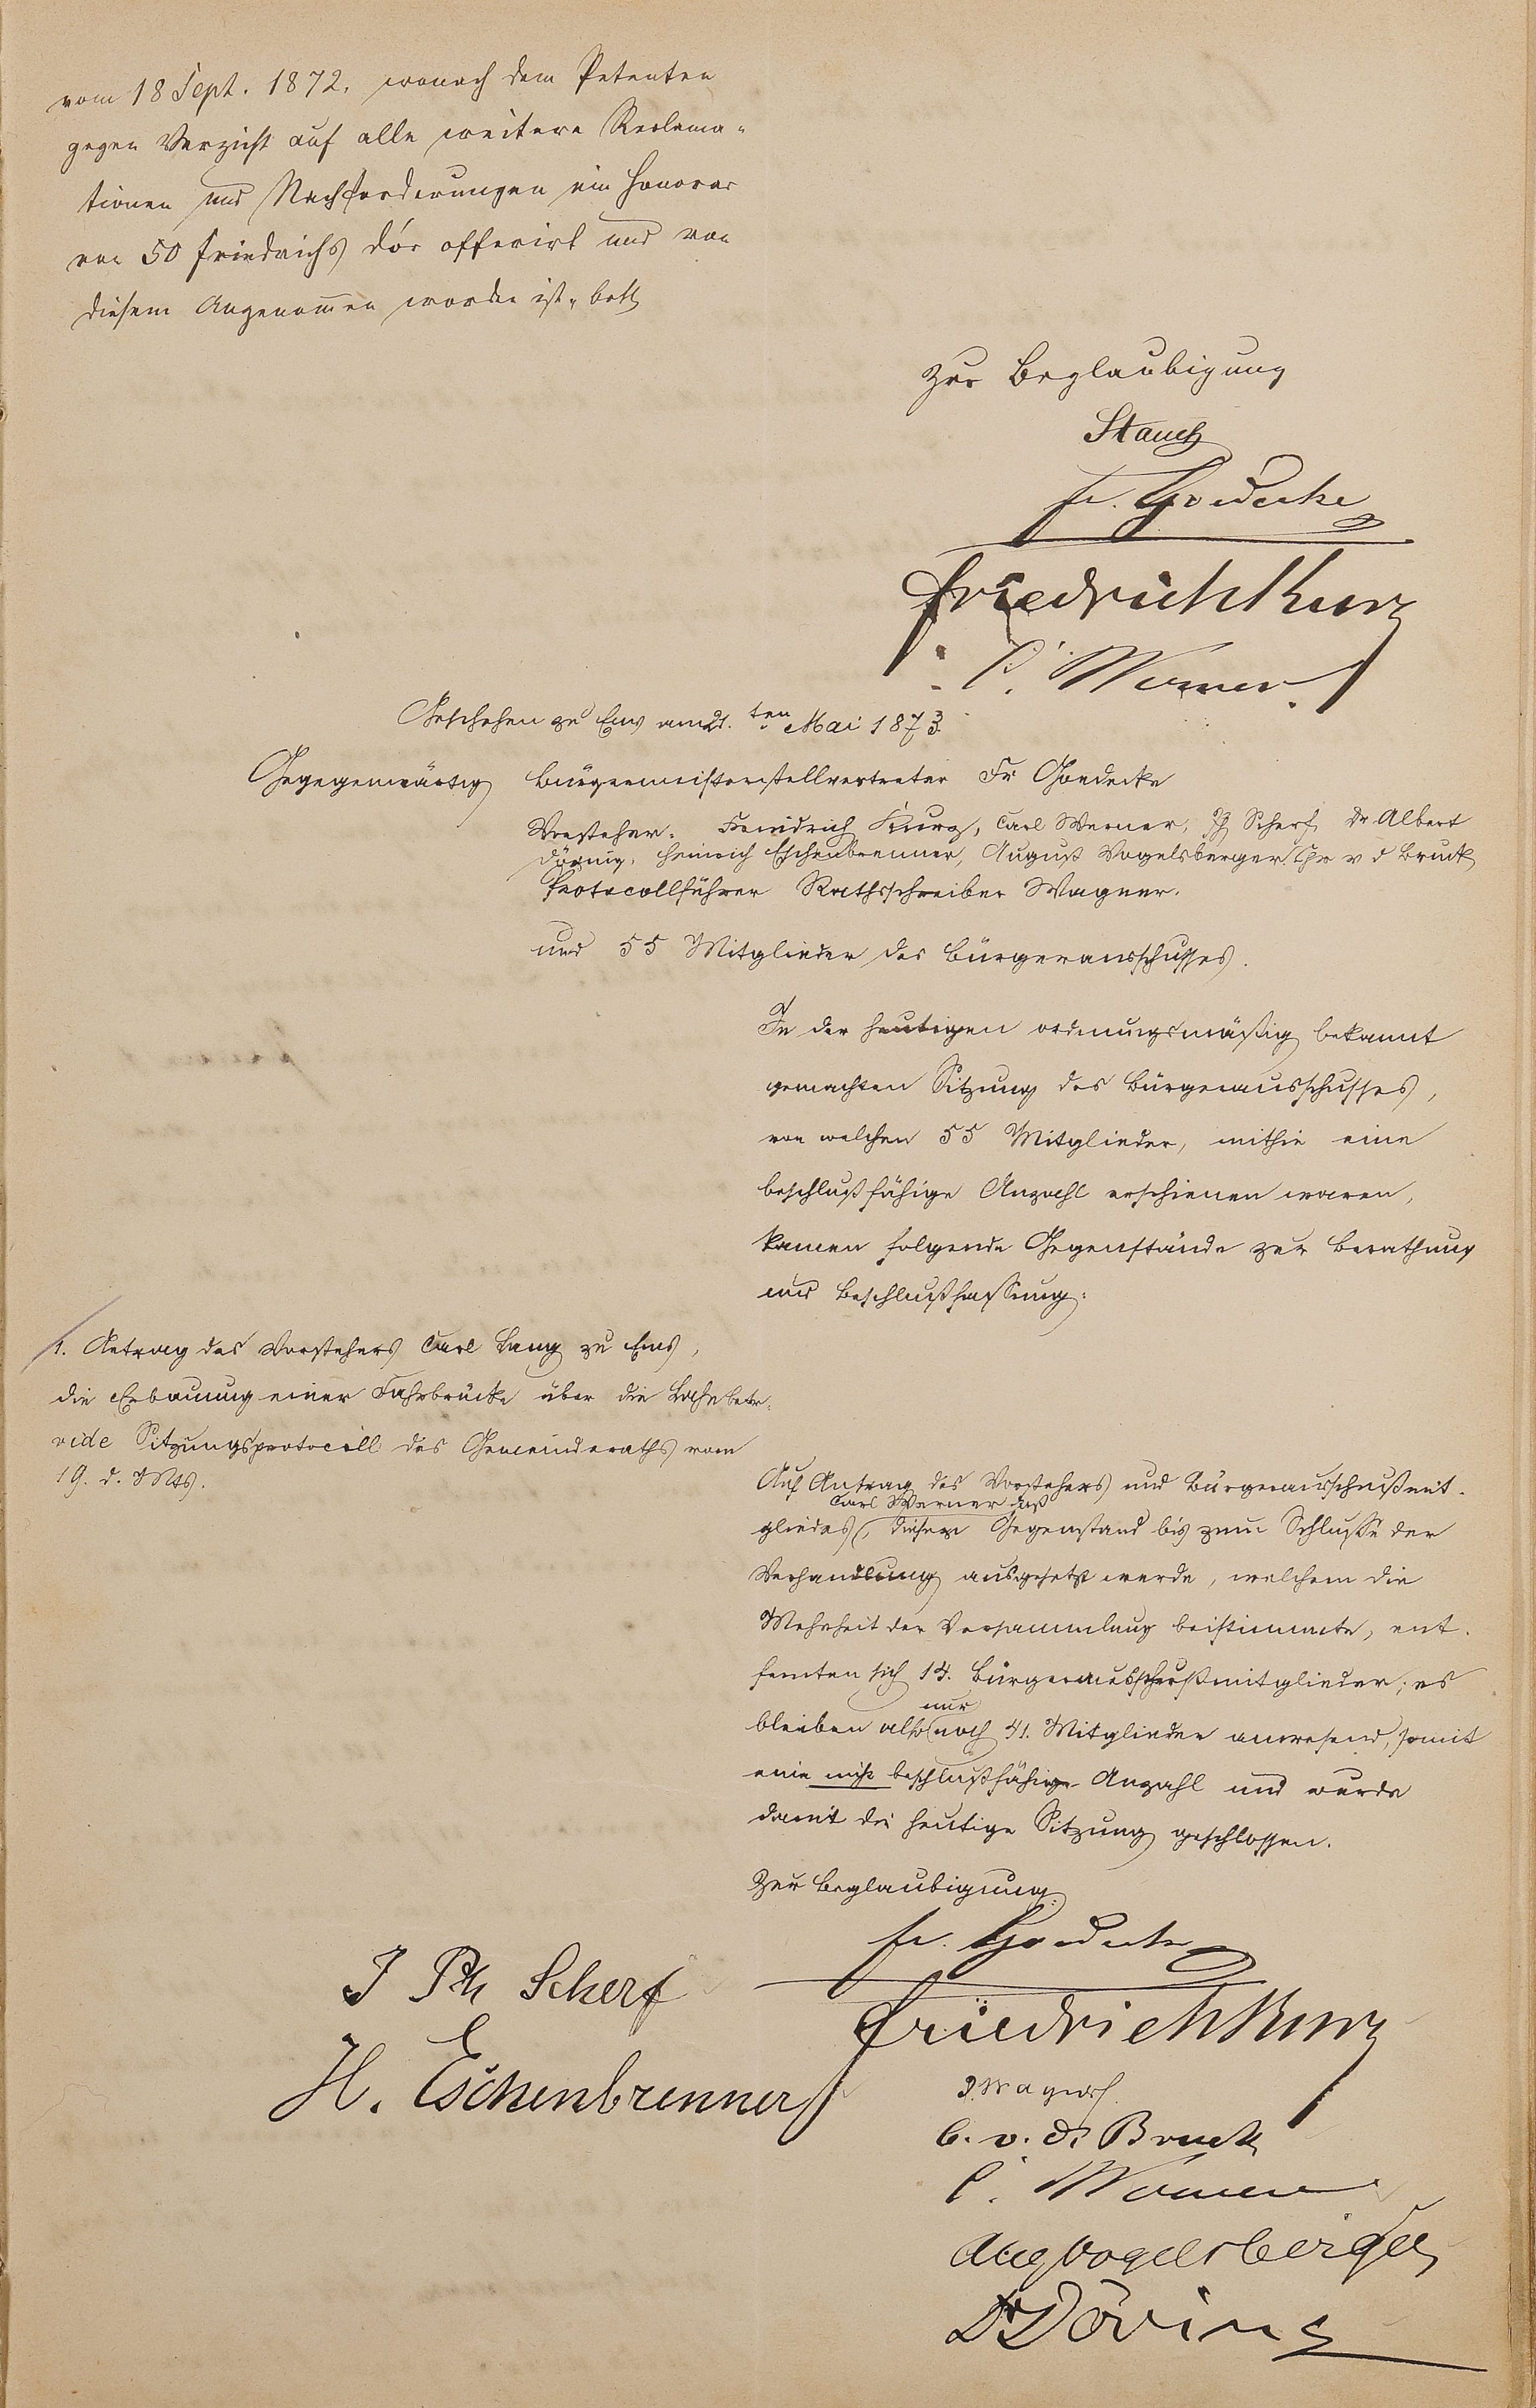 vom 18 Sept. 1872, wonach dem Petenten
gegen Verzicht auf alle weitere Reclama-
tionen und Nachforderungen ein Honorar
von 50 Friedrichs d'or offerirt und von
diesem Angenom̄en worden ist, betr
Zur Beglaubigung
Stauch
Fr. Goedecke
Friedrich Kurz
C. Werner
Geschehen zu Ems am 21. ten Mai 1873.
Gegegenwärtig Bürgermeisterstellvertreter Fr Goedecke
Vorsteher. Friedrich Kurz, Carl Werner, Scherf, Dr Albert
Döring, Heinrich Eschenbrenner, August Vogelsberger, Chr v d Bruck
Protocollführer Rathsschreiber Wagner.
und 55 Mitglieder des Bürgerausschusses.
In der heutigen ordnungsmäßig bekannt
gemachten Sitzung des Bürgerausschusses,
von welchen 55 Mitglieder, mithin eine
beschlußfähige Anzahl erschienen waren,
kamen folgende Gegenstände zur Berathung
und Beschlußfassung:
1. Antrag des Vorstehers Carl Lang zu Ems,
die Erbauung einer Fahrbrücke über die Lahn betr.
vide Sitzungsprotocoll des Gemeinderaths vom
19. d. Mts.
Auf Antrag des Vorstehers und Bürgerausschußmit-
Carl Werner daß
gliedes, dieser Gegenstand bis zum Schlusse der
Verhandlung ausgesetzt werde, welchem die
Mehrheit der Versammlung beistimmte, ent-
fernten sich 14. Bürgerausschußmitglieder; es
nur
bleiben also noch 41. Mitglieder anwesend, somit
eine nicht beschlußfähige Anzahl und wurde
damit die heutige Sitzung geschlossen.
Zur Beglaubigung:
Fr. Goedecke
J Ph Scherf
Friedrich Kurz
H. Eschenbrenner
Wagner
C. v. d. Bruck
C. Werner
Aug Vogelsberger
Dr Döring